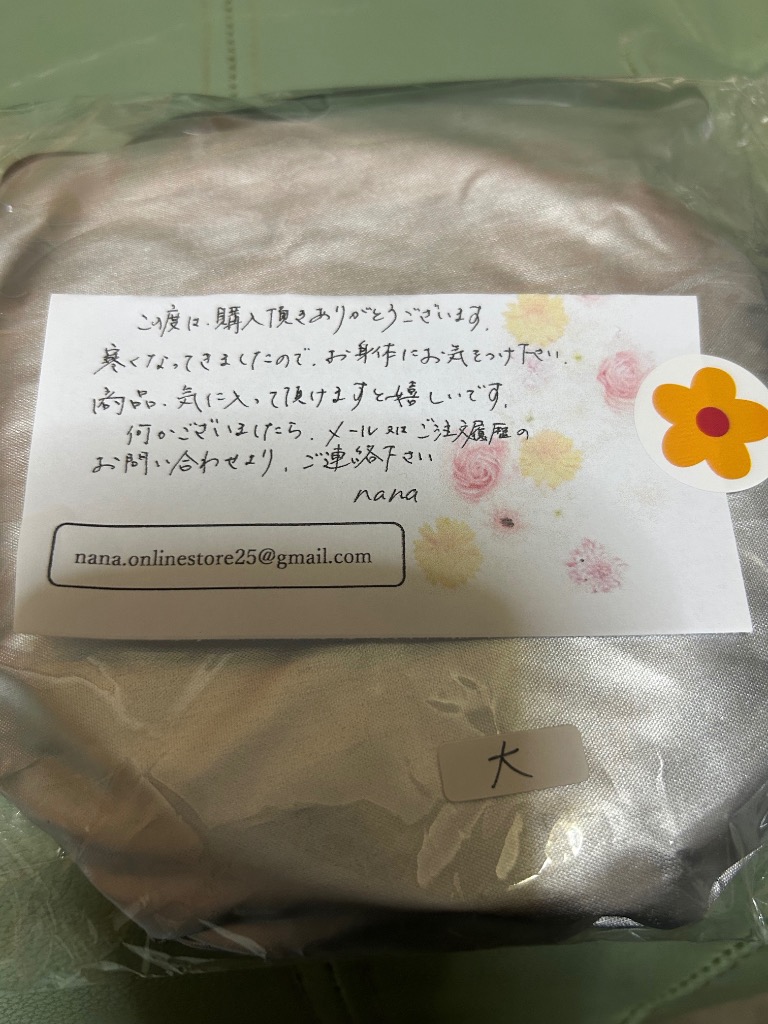 この度は、購入頂きありがとうございます。
寒くなってきましたので、お身体にお気をつけ下さい。
商品、気に入って頂けますと嬉しいです。
何かございましたら、メール又はご注文履歴の
お問い合わせより、ご連絡下さい
nana
nana.onlinestore25@gmail.com
大